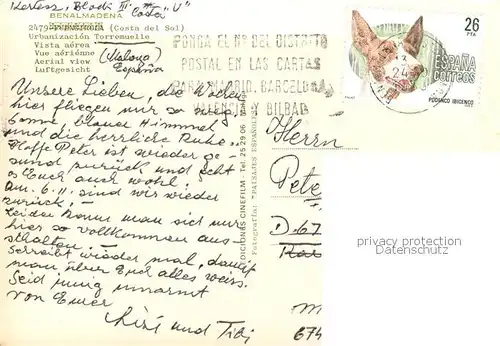 Keless, Block III m "U"
BENALMADENA Costa
2479 - FUENGIROLA (Costa del Sol)
Urbanización Torremuelle
Vista aérea (Malaga)
Vue aérienne España
Aerial view
Luftgesicht
PONGA EL Nº DEL DISTRITO
POSTAL EN LAS CARTAS
PARA MADRID, BARCELONA,
VALENCIA Y BILBAO
26
PTA
ESPAÑA
correos
PODENCO IBICENCO
24
Unsere Lieben, die Wochen
hier fliegen nur so weg
Sonne, blauer Himmel
und die herrliche Ruhe.
Hoffe Peter ist wieder ge-
sund zurück und geht
es Euch auch wohl.
Am 6.11. sind wir wieder
zurück!
Leider kann man sich nur
hier so vollkommen aus-
schalten
Schreibt wieder mal, damit
man über Euch alles weiss.
Seid innig umarmt
von Eurer
Lisi und Tibi
EDICIONES CINEFILM - Tel. 25 29 06
Fotografía: "PAISAJES ESPAÑOLES"
Herrn
Pete
D.67
M
674
privacy protection
Datenschutz